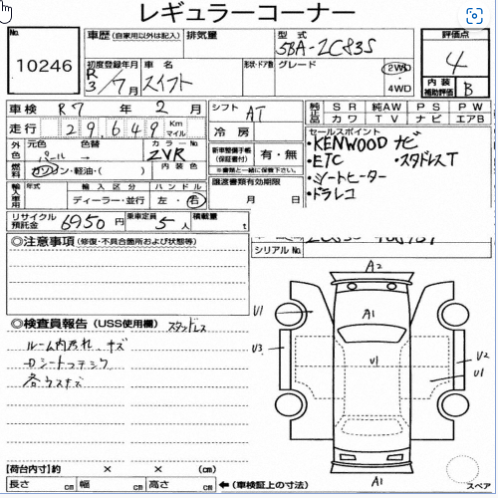 レギュラーコーナー
No. 10246
車歴 (自家用以外は記入) 排気量 型式 5BA-ZC83S 評価点 4
初度登録年月 R3/7月 車名 スイフト 形状・ドア数 グレード 2WD 4WD 内装補助評価 B
車検 R7年2月 シフト AT 純正品 SR 純AW PS PW
カワ TV ナビ エアB
走行 29,649 Km マイル 冷房
外色 元色 パール 色替 → カラーNo ZVR 新車整備手帳(保証書付) 有・無
※書類と一緒に保管下さい。
燃料 ガソリン・軽油・( ) 内装色
セールスポイント
・KENWOOD ナビ
・ETC ・スタドレスT
・シートヒーター
・ドラレコ
輸入車用 年式 輸入区分 ディーラー・並行 ハンドル 左・右
譲渡書類有効期限 月 日
リサイクル預託金 6950円 乗車定員 5人 積載量 t
シリアルNo.
◎注意事項 (修復・不具合箇所および状態等)
◎検査員報告 (USS使用欄) スタッドレス
ルーム内汚れ、キズ
各ウスキズ
A2
U1 A1
U3 U1 U2
U1
A1
スペア
【荷台内寸】約 × × (cm)
長さ cm 幅 cm 高さ cm ←(車検証上の寸法)